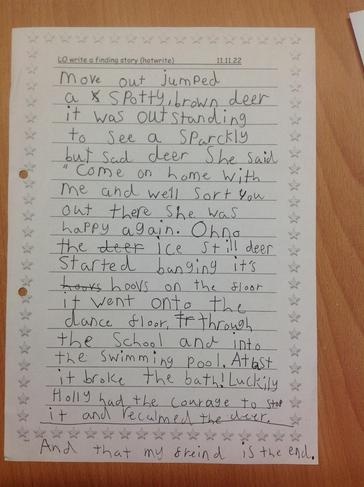 LO write a finding story (hotwrite) 11.11.22
move out jumped
a spotty, brown deer
it was outstanding
to see a sparckly
but sad deer She said
"Come on home with
me and well sort you
out there She was
happy again. Ohno
the deer ice still deer
Started banging it's
hoovs hoovs on the floor
it went onto the
dance floor, through
the School and into
the swimming pool. Atlast
it broke the bath! Luckily
Holly had the courage to stop
it and recalmed the deer.
And that my freind is the end.